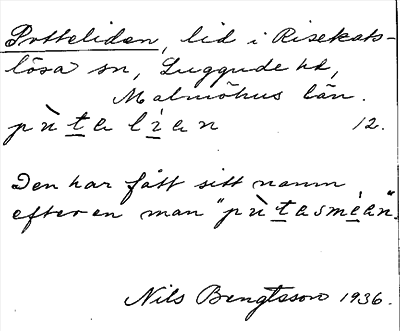 Potteliden, lid i Risekats-
lösa sn, Luggude hd,
Malmöhus län.
pùtalìan 12.
Den har fått sitt namn
efter en man "pùtasmèan".
Nils Bengtsson 1936.